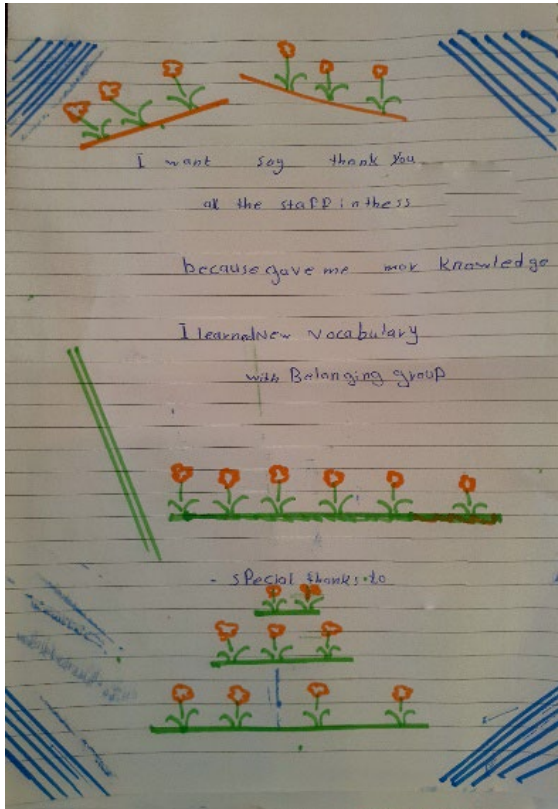 I want say thank you
all the staff inthess
because gave me mor knowledge
I learnedNew vocabulary
with Belanging group
- special thanks to